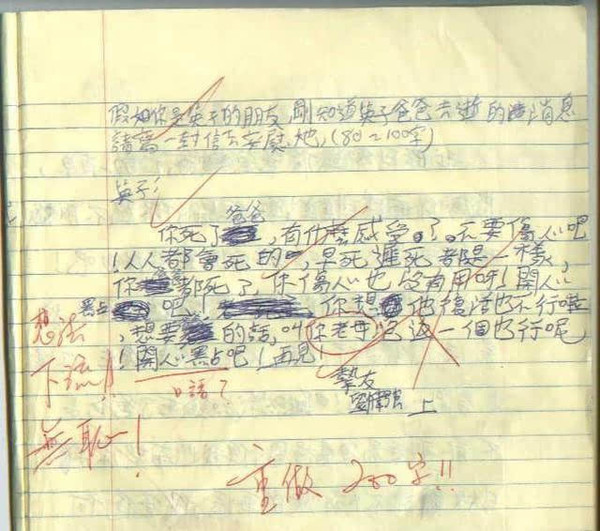 假如你是英子的朋友,剛知道英子爸爸去逝的消息
請寫一封信去安慰她,(80~100字)
英子:
你死了爸爸,有什麼感受。了。不要傷心吧
!人人都會死的,早死遲死都是一樣,
你都死了,你傷心也沒有用呀!開心
黑占吧,你想他復活也不行啦
,想要的話,叫你老母搵過一個也行呢
!開心黑占吧!再見
摯友
上
想法
下流!!
口語?
無恥!
重做 200字!!